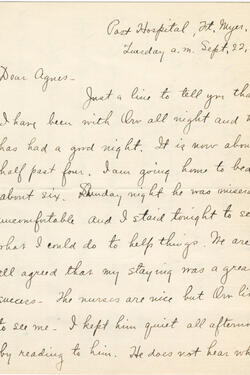 Post Hospital, Ft. Myer,
Tuesday a.m. Sept. 22,
Dear Agnes-
Just a line to tell you tha
I have been with Orv all night and
has had a good night. It is now abou
half past four. I am going home to be
about six. Sunday night he was misera
uncomfortable and I staid tonight to se
what I could do to help things. We are
all agreed that my staying was a grea
success- The nurses are nice but Orv li
to see me- I kept him quiet all afterno
by reading to him. He does not hear wh